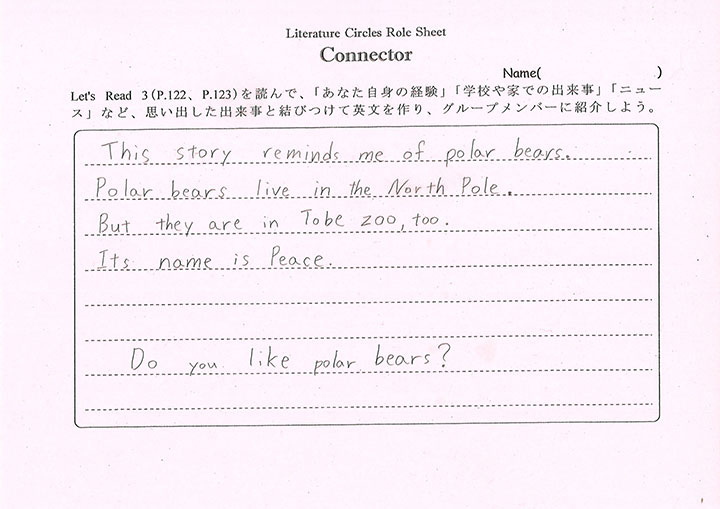 Literature Circles Role Sheet
Connector
Name( )
Let's Read 3(P.122、P.123)を読んで、「あなた自身の経験」「学校や家での出来事」「ニュー
ス」など、思い出した出来事と結びつけて英文を作り、グループメンバーに紹介しよう。
This story reminds me of polar bears.
Polar bears live in the North Pole.
But they are in Tobe zoo, too.
Its name is Peace.
Do you like polar bears?